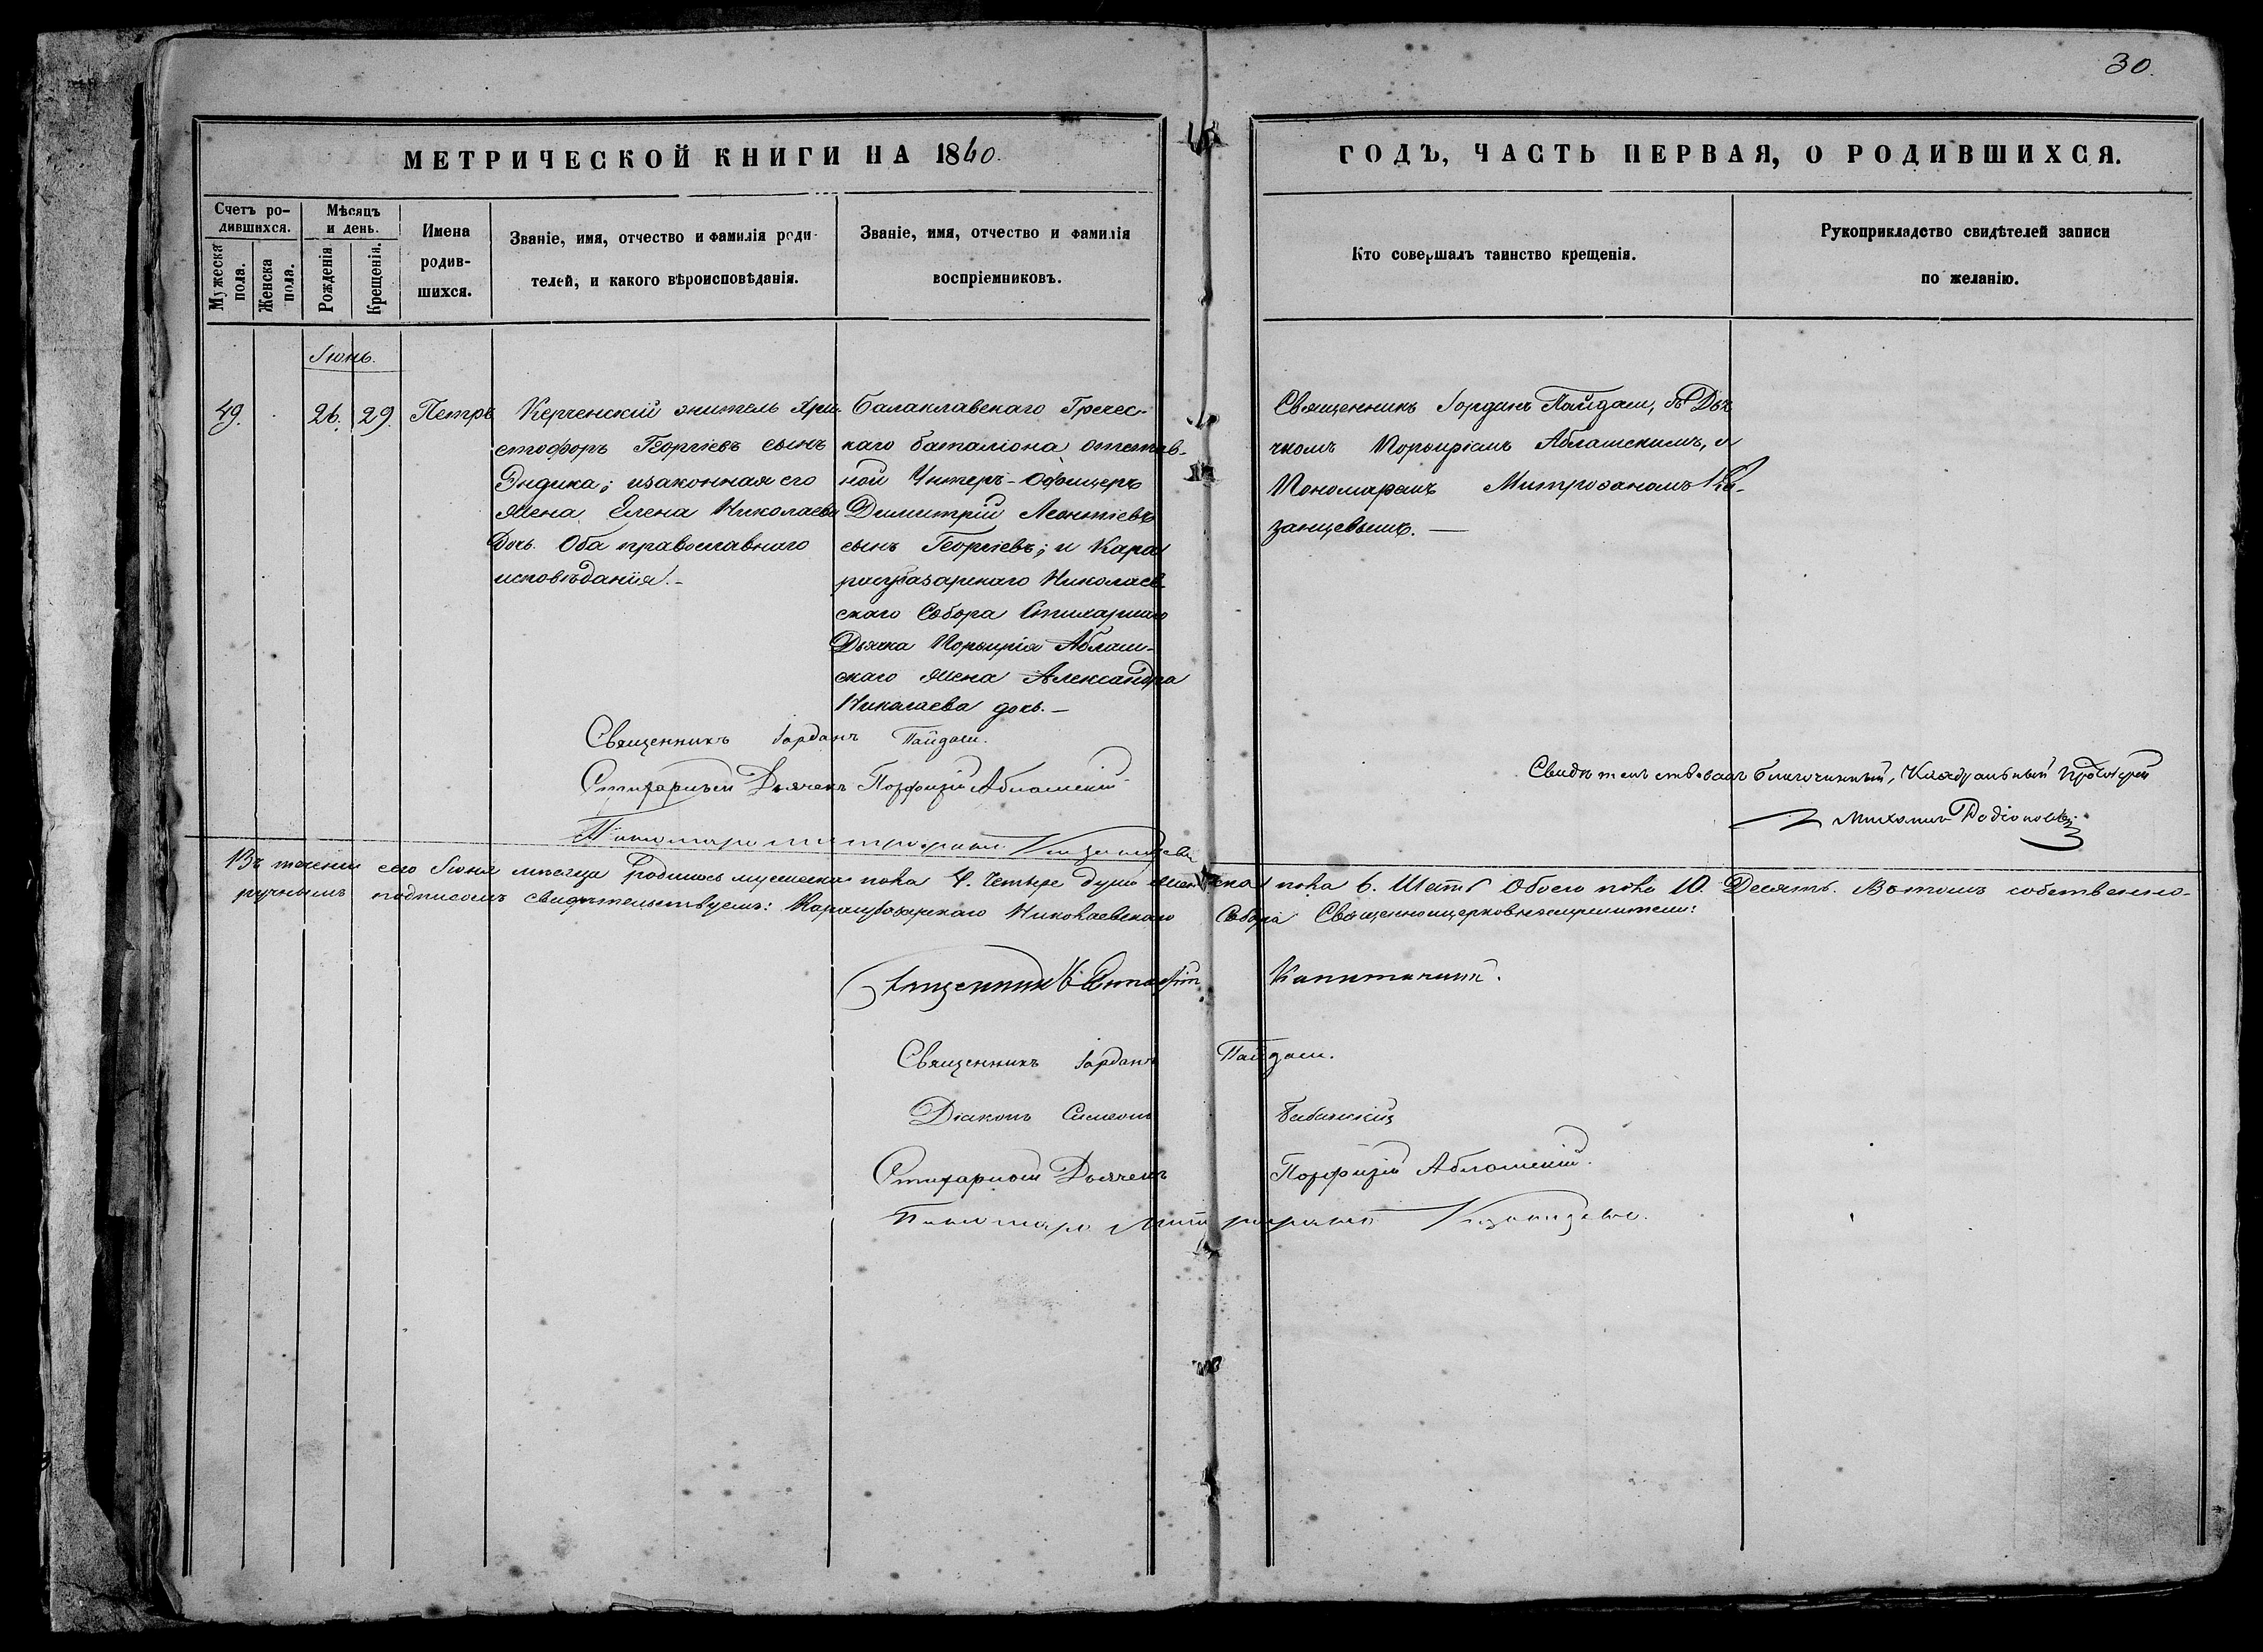 30.
МЕТРИЧЕСКОЙ КНИГИ НА 1860.
ГОДЪ, ЧАСТЬ ПЕРВАЯ, О РОДИВШИХСЯ.
Счетъ ро-
дившихся.
Мужеска пола.
Женска пола.
Мѣсяцъ
и день.
Рожденія
Крещенія.
Имена
родив-
шихся.
Званіе, имя, отчество и фамилія роди-
телей, и какого вѣроисповѣданія.
Званіе, имя, отчество и фамилія
воспріемниковъ.
Кто совершалъ таинство крещенія.
Рукоприкладство свидѣтелей записи
по желанію.
Іюнь.
49. 26. 29. Петръ
Керченскій житель Хри-
стофоръ Георгіевъ сынъ
Эндика; изаконная его
жена Елена Николаева
Дочь. Оба православнаго
исповѣданія.-
Балаклавскаго Гречес-
каго баталіона отстав-
ной Унтеръ-Офицеръ
Димитрій Леонтіевъ
сынъ Георгіевъ; и Кара
расубазарскаго Николаев
скаго Собора Стихарнаго
Дьячка Порфирія Аблаж-
скаго жена Александра
Николаева дочь.—
Священникъ Іорданъ Пайдаши, съ Дья
чкомъ Порфиріемъ Аблажскимъ, и
Пономаремъ Митрофаномъ Ка-
занцевымъ.—
Священникъ Іорданъ Пайдаши.
Стихарный Дьячекъ Порфирій Аблажскій
Пономарь Митрофанъ Казанцевъ
Свидѣтельствовалъ Благочинный, Каѳедральный Протоіерей
Михаилъ Родіоновъ
Въ теченіи сего Іюня мѣсяца Родилось мужеска пола 4. Четыре души женска пола 6. Шесть Обоего пола 10. Десять. Вътомъ собственно-
ручнымъ подписомъ свидѣтельствуемъ: Карасубазарскаго Николаевскаго Собора Священноицерковнослужители:
Священникъ
Священникъ Іорданъ Пайдаши.
Діаконъ Симеонъ
Стихарной Дьячекъ Порфирій Аблажскій.
Пономарь Митрофанъ Казанцевъ.